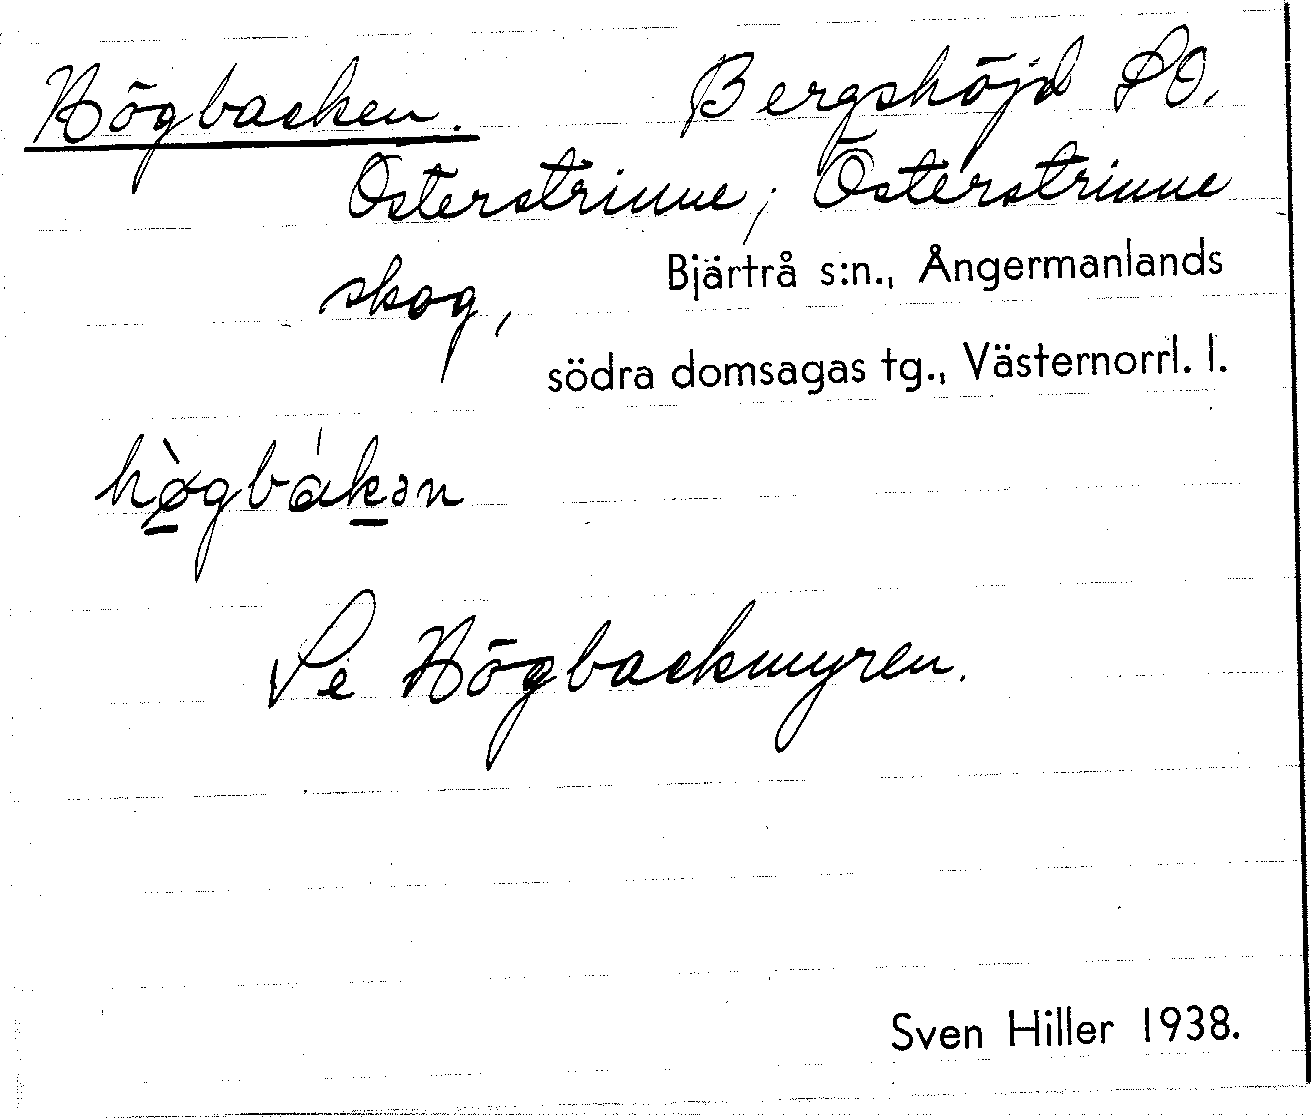 Högbacken. Bergshöjd SO.
Österstrinne; Österstrinne
skog, Bjärtrå s:n., Ångermanlands
södra domsagas tg., Västernorrl. l.
hø̀gbákən
Se Högbackmyren.
Sven Hiller 1938.